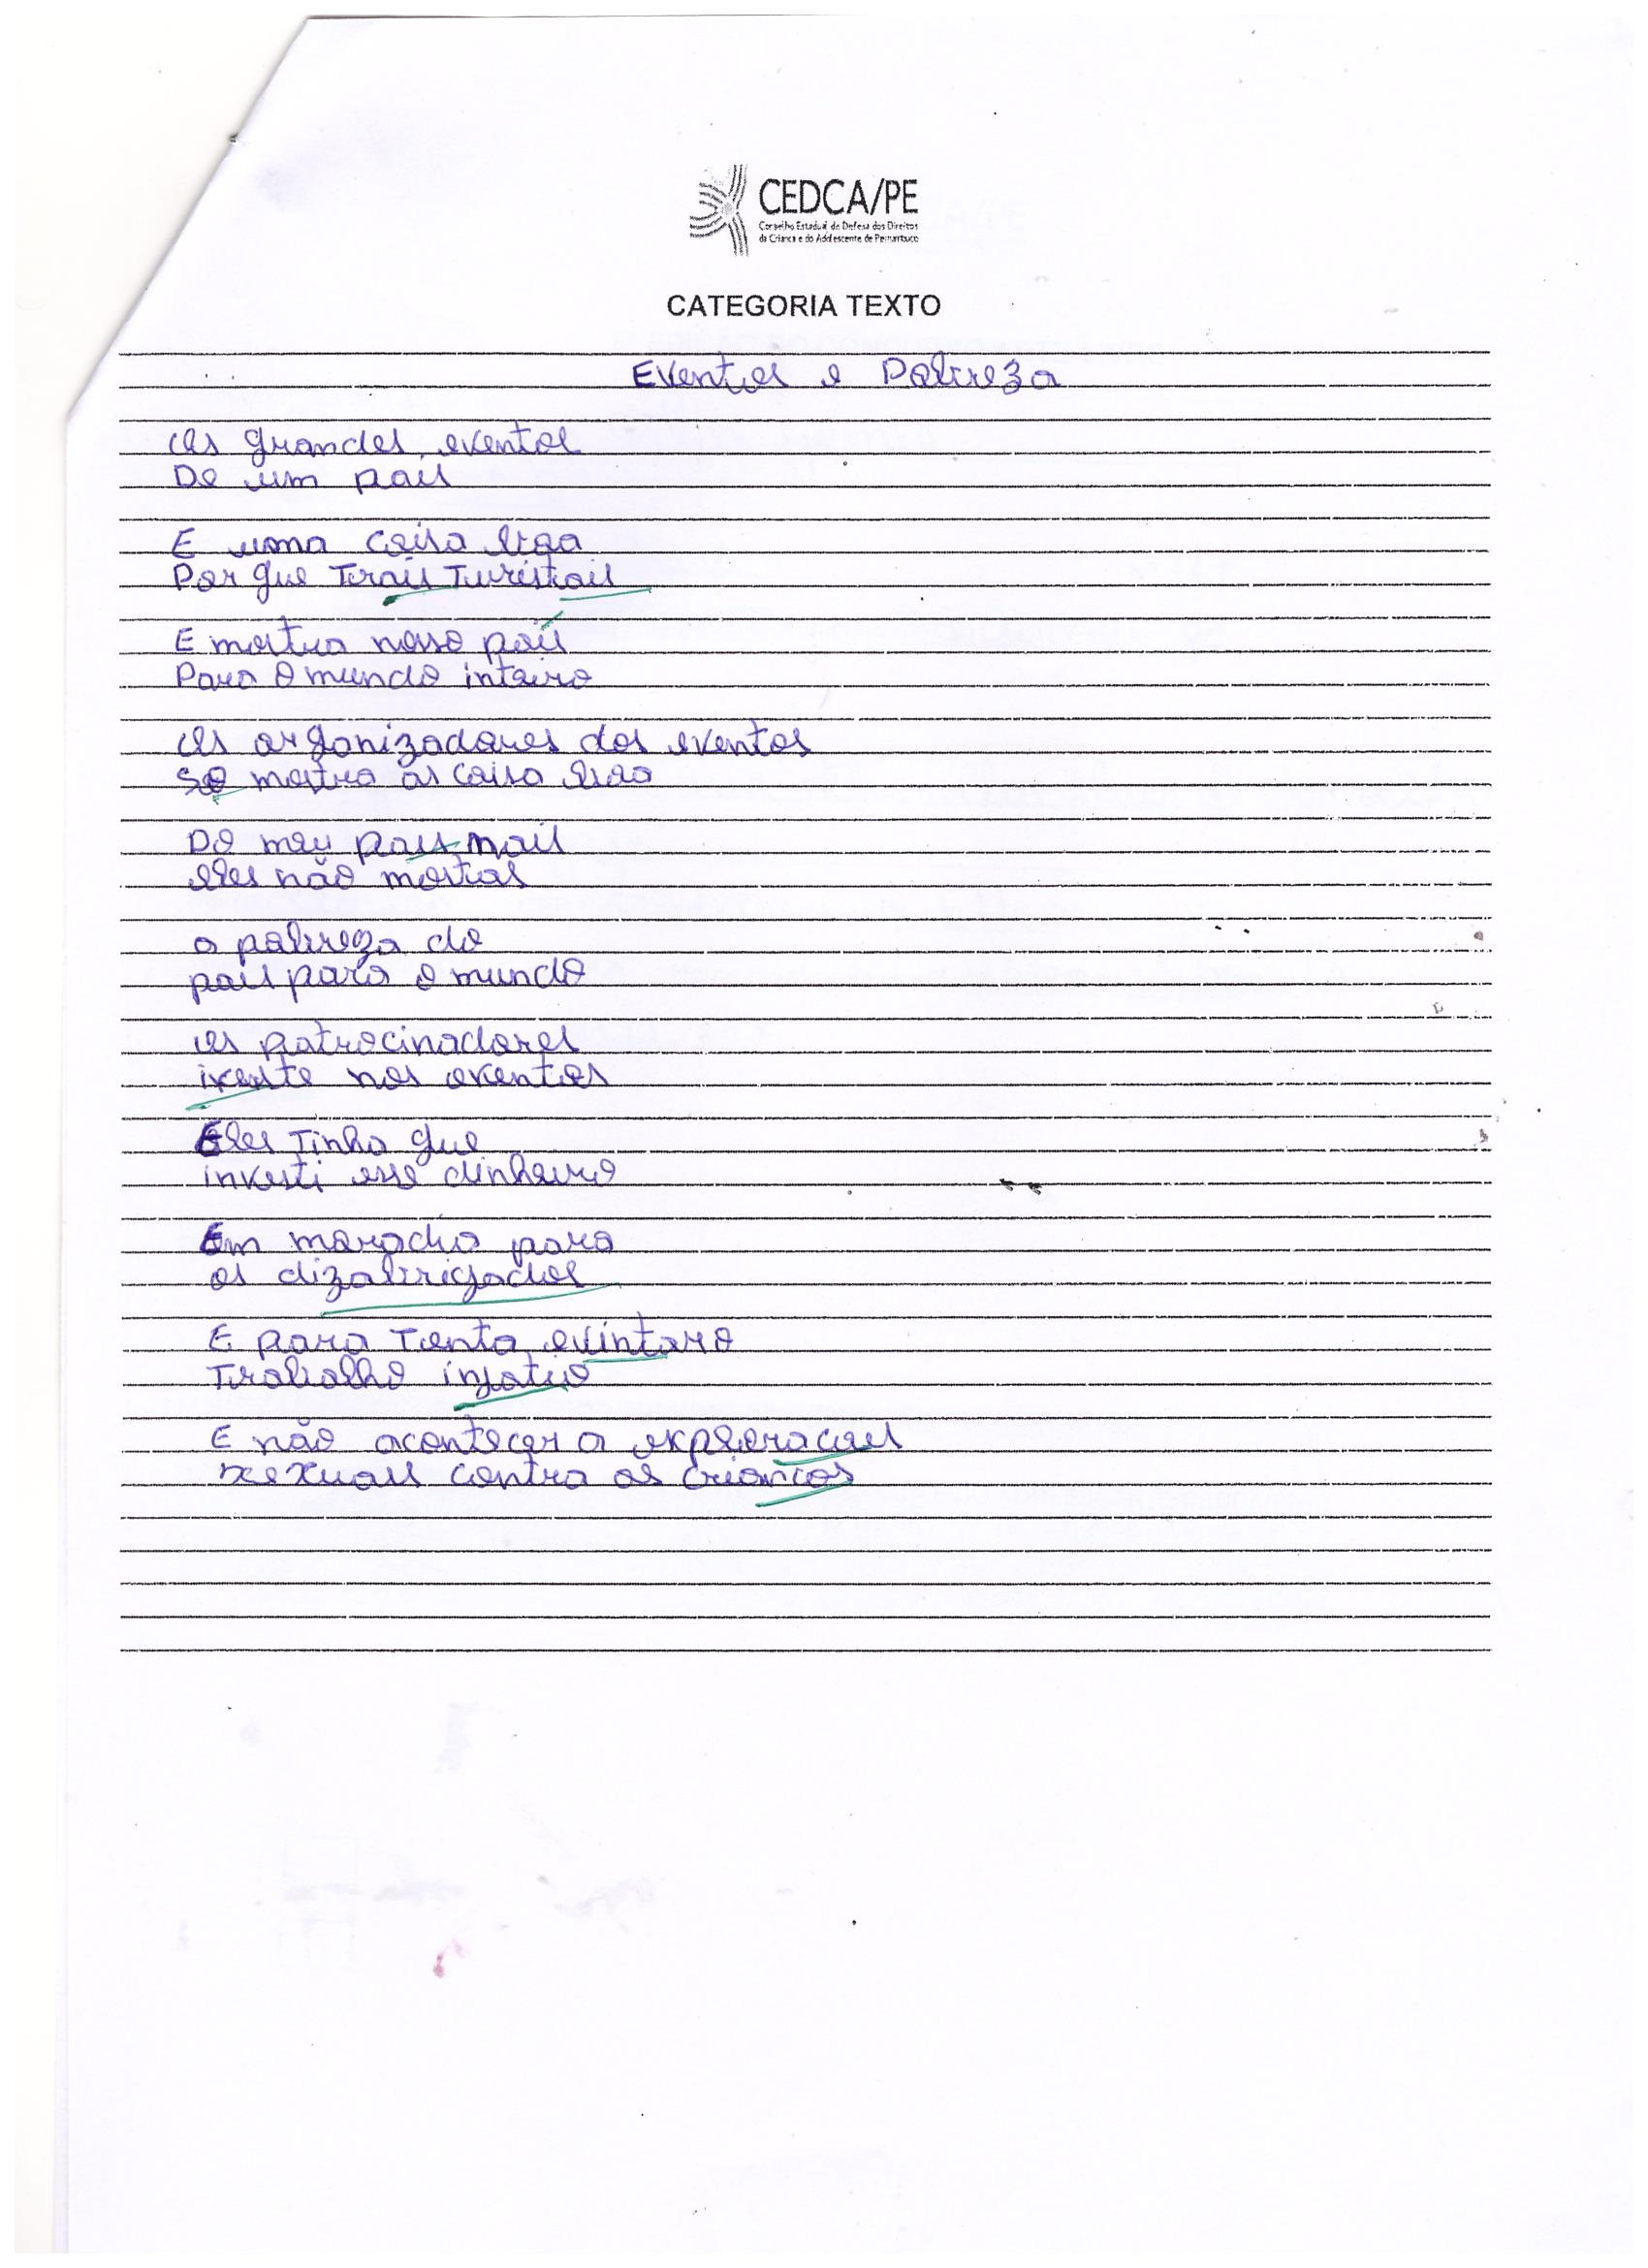 CEDCA/PE
Conselho Estadual de Defesa dos Direitos
da Criança e do Adolescente de Pernambuco
CATEGORIA TEXTO
Eventos e Pobreza
Os grandes eventos
De um pais
E uma coisa boa
Por que Trais Turistais
E mostra nosso país
Para o mundo inteiro
Os organizadores dos eventos
So mostra as coisa boa
Do meu pais mais
eles não mostras
a pobreza do
pais para o mundo
os patrocinadores
iveste nos eventos
Eles Tinha que
investi esse dinheiro
Em maradia para
os dizabrigados
E para Tenta evintaro
Trabalho infatio
E não acontecer a exploracoes
sexuais contra as criancas